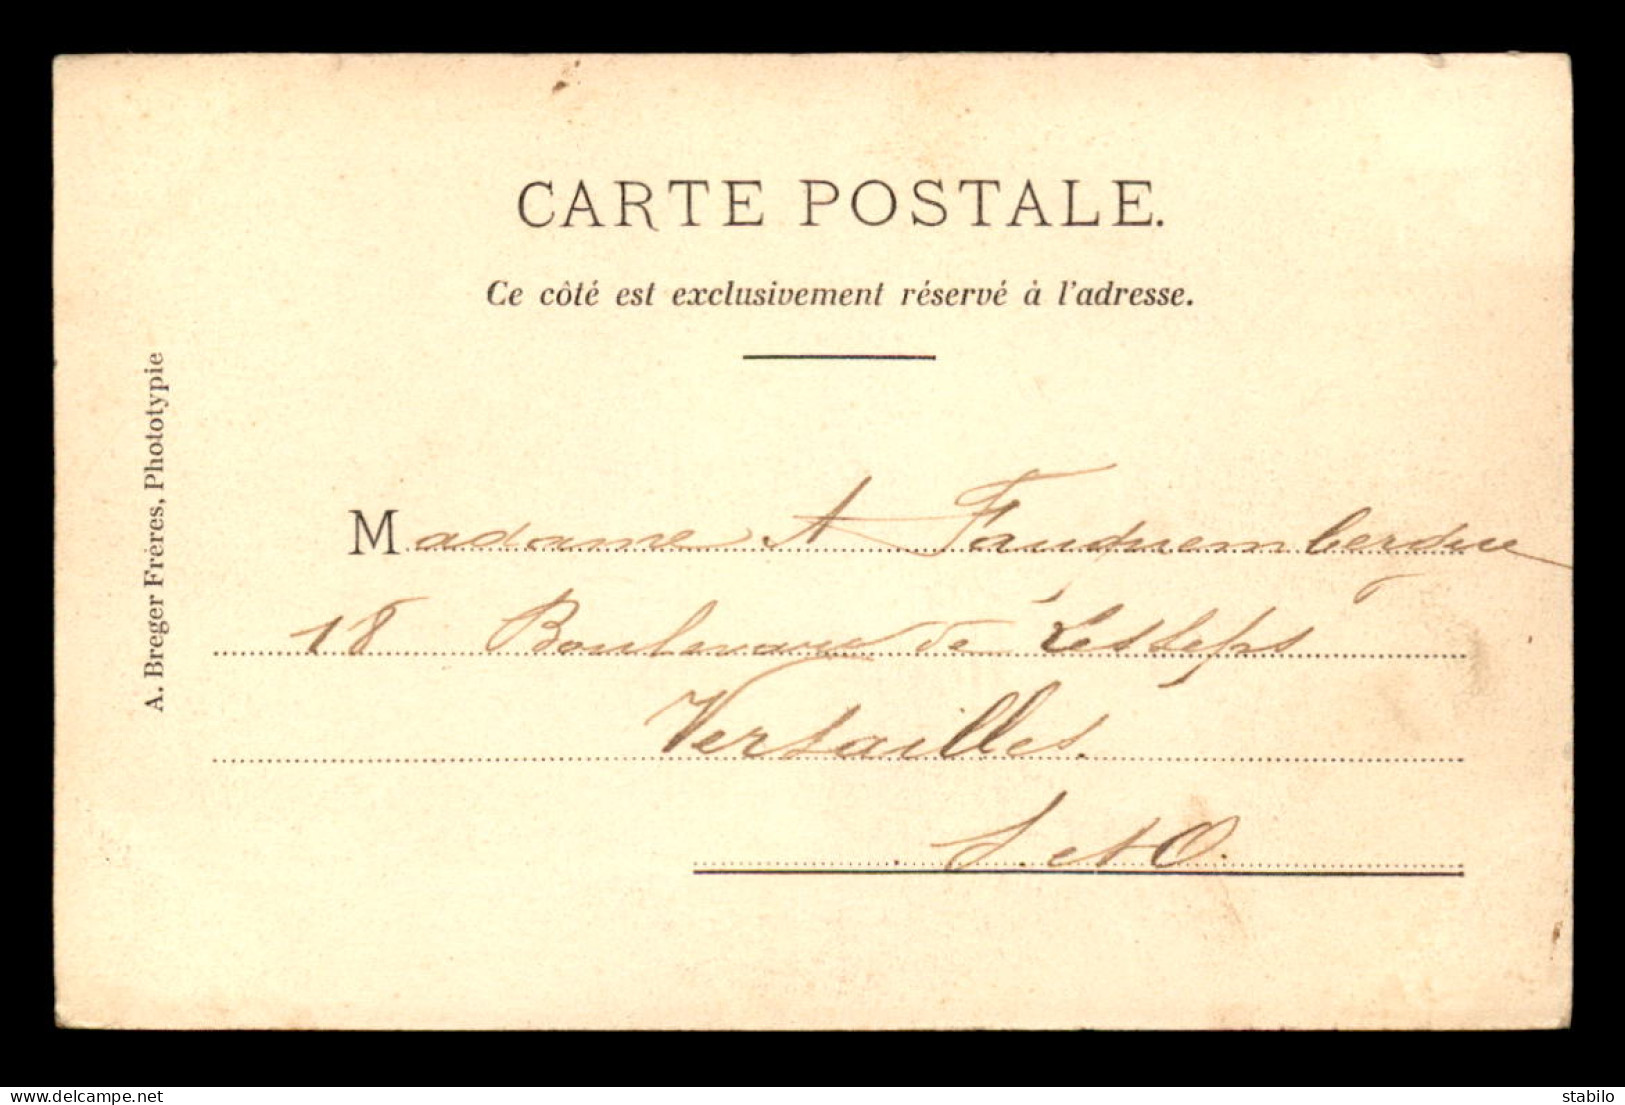 CARTE POSTALE.
Ce côté est exclusivement réservé à l'adresse.
A. Breger Frères, Phototypie
Madame A Fauquembergue
18 Boulevard de Lesseps
Versailles.
S. et O.
delcampe.net
stabilo